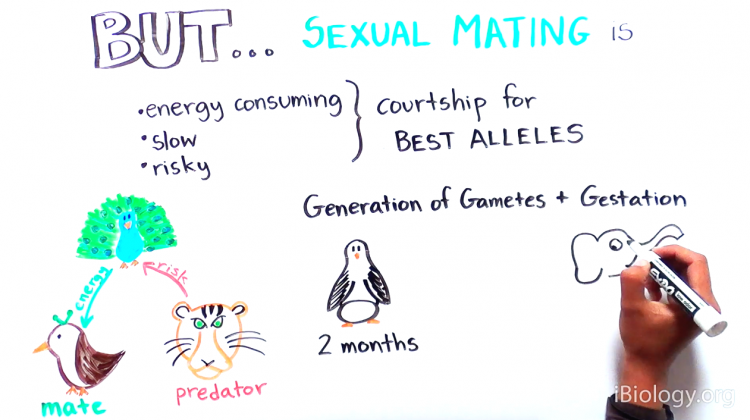 BUT... SEXUAL MATING is
• energy consuming
• slow
• risky
courtship for
BEST ALLELES
Generation of Gametes + Gestation
energy
risk
2 months
mate
predator
EXPO
iBiology.org